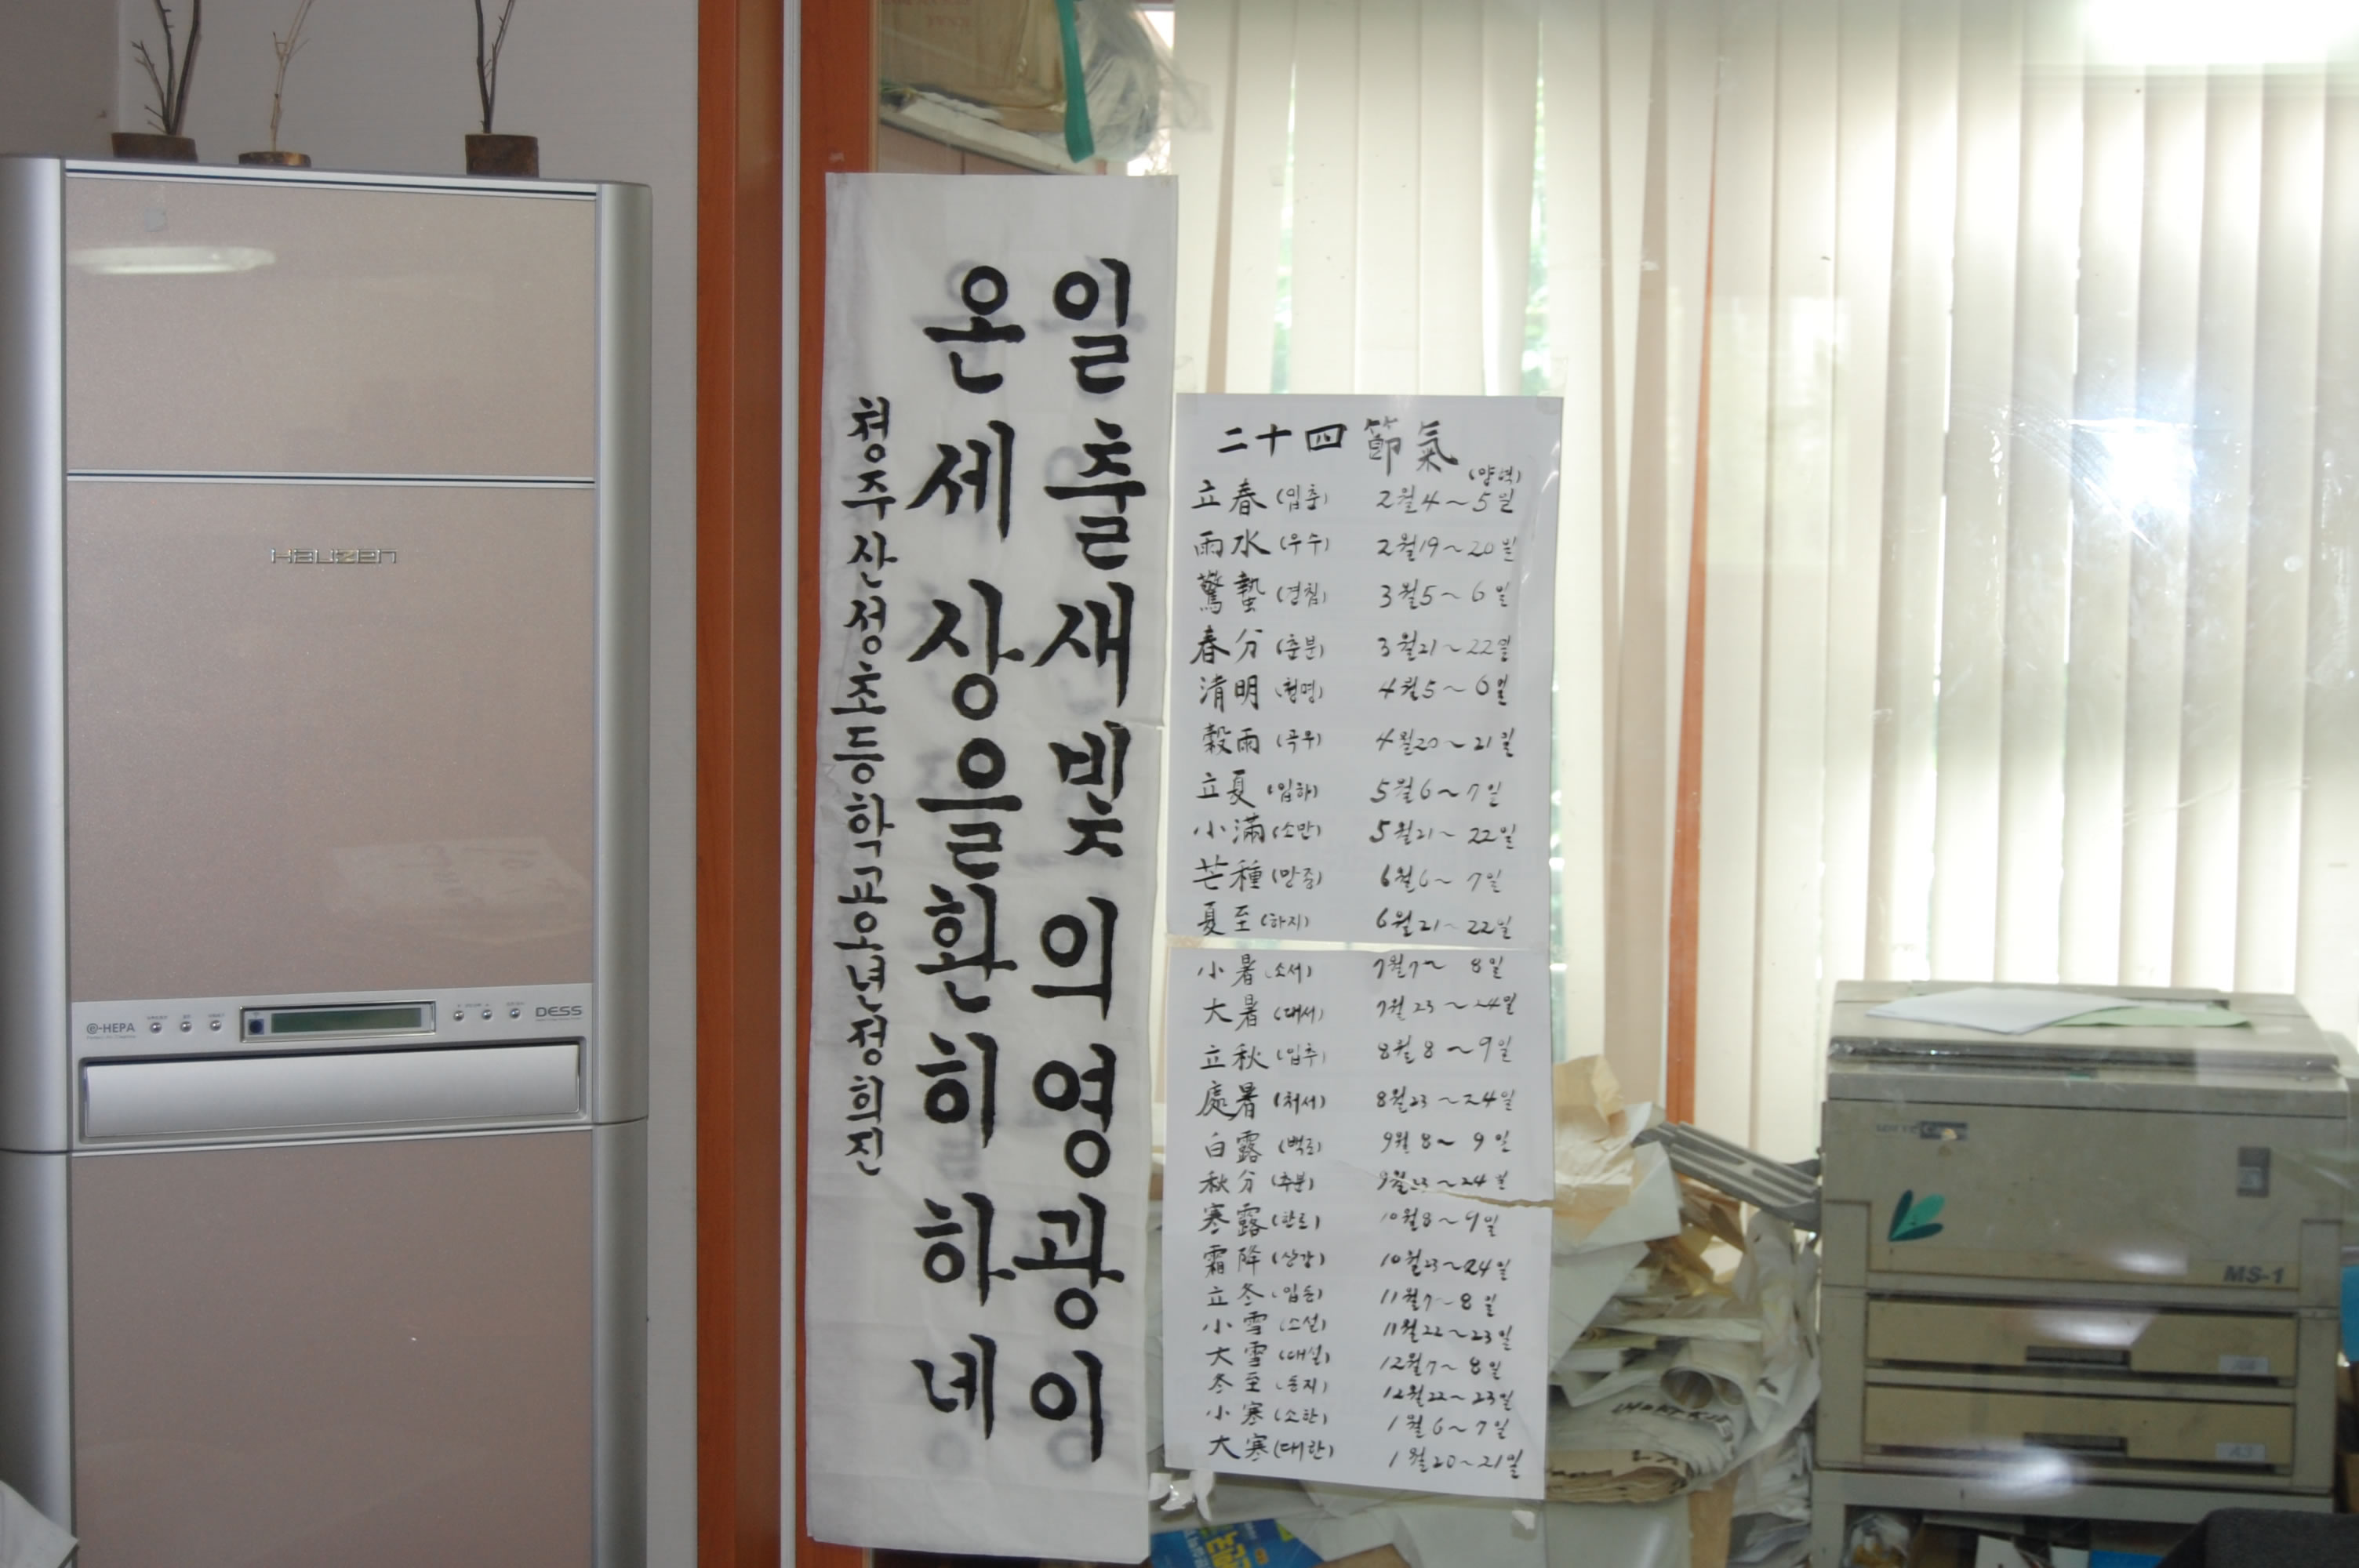 일출새빛의영광이
온세상을환히하네
청주산성초등학교 정희진
二十四節氣
(양력)
立春(입춘) 2월4~5일
雨水(우수) 2월19~20일
驚蟄(경칩) 3월5~6일
春分(춘분) 3월21~22일
清明(청명) 4월5~6일
穀雨(곡우) 4월20~21일
立夏(입하) 5월6~7일
小滿(소만) 5월21~22일
芒種(만종) 6월6~7일
夏至(하지) 6월21~22일
小暑(소서) 7월7~8일
大暑(대서) 7월23~24일
立秋(입추) 8월8~9일
處暑(처서) 8월23~24일
白露(백로) 9월8~9일
秋分(추분) 9월23~24일
寒露(한로) 10월8~9일
霜降(상강) 10월23~24일
立冬(입동) 11월7~8일
小雪(소설) 11월22~23일
大雪(대설) 12월7~8일
冬至(동지) 12월22~23일
小寒(소한) 1월6~7일
大寒(대한) 1월20~21일
HAUZEN
e-HEPA
DESS
MS-1